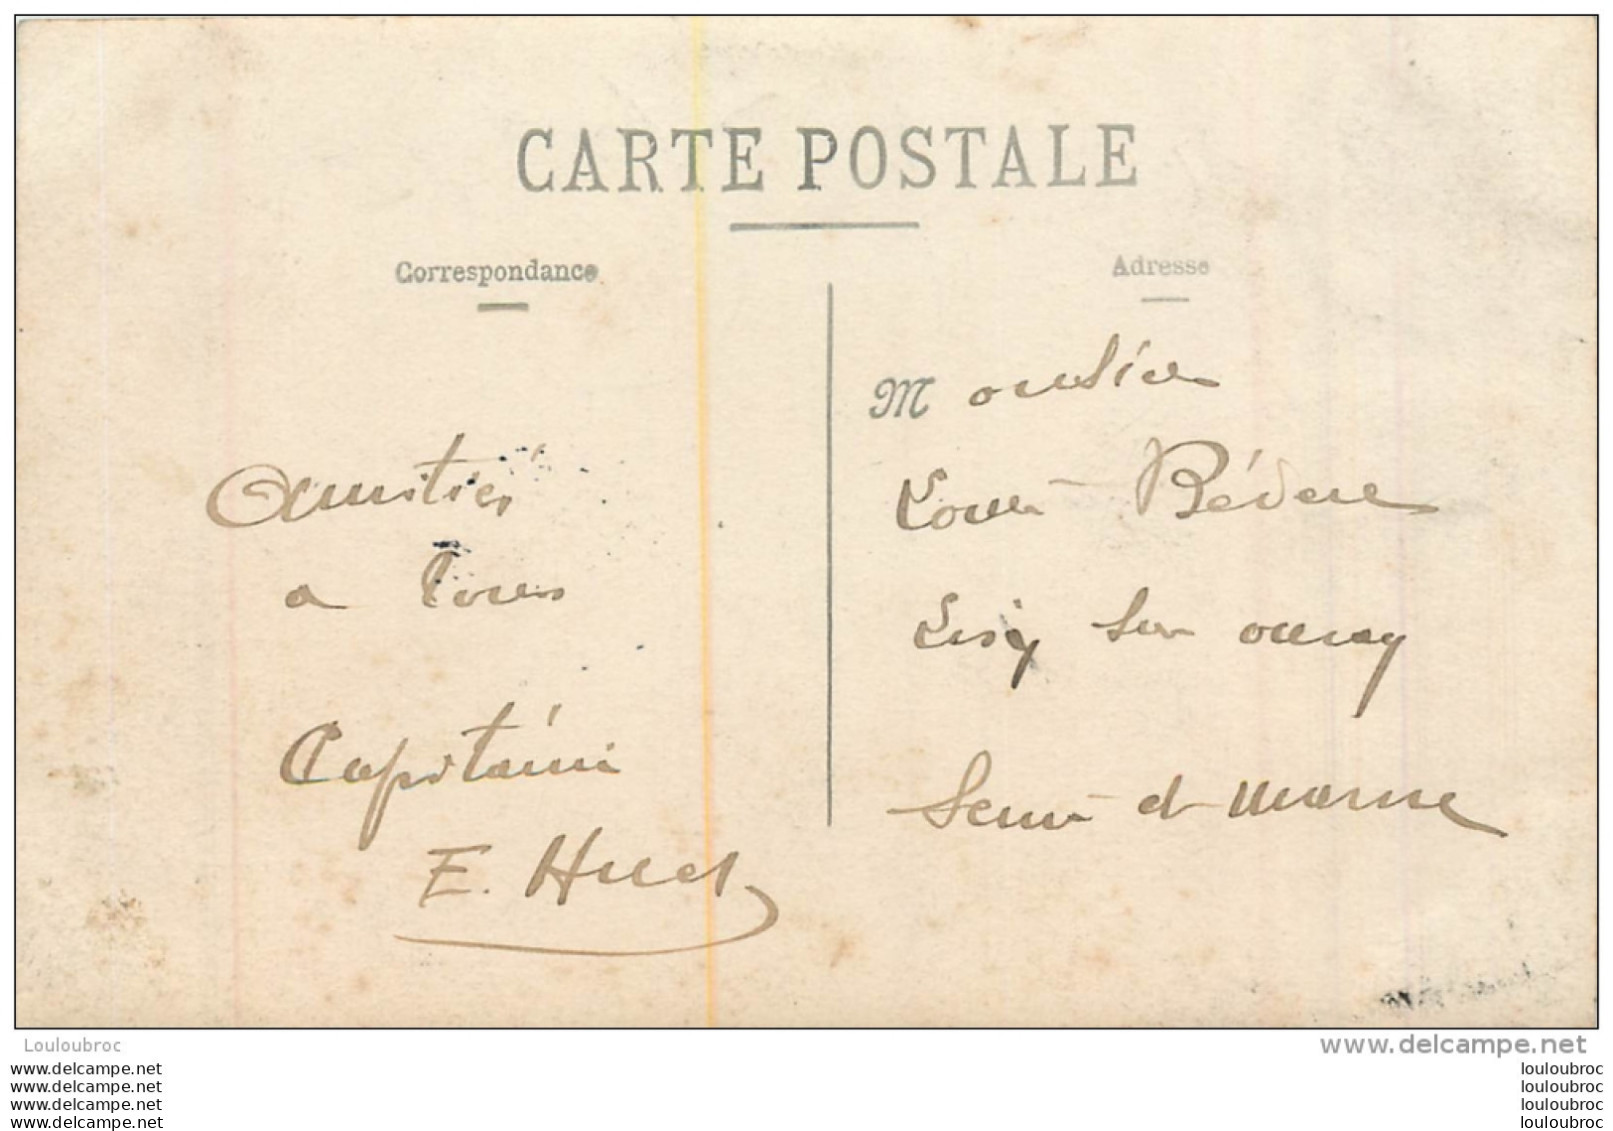 CARTE POSTALE
Correspondance
Amitiés
a tous
Capitaine
E. Huet
Adresse
Monsieur
Louis Bédere
Lisy sur ourcq
Seine et marne
Louloubroc
www.delcampe.net
www.delcampe.net
www.delcampe.net
www.delcampe.net
www.delcampe.net
louloubroc
louloubroc
louloubroc
louloubroc